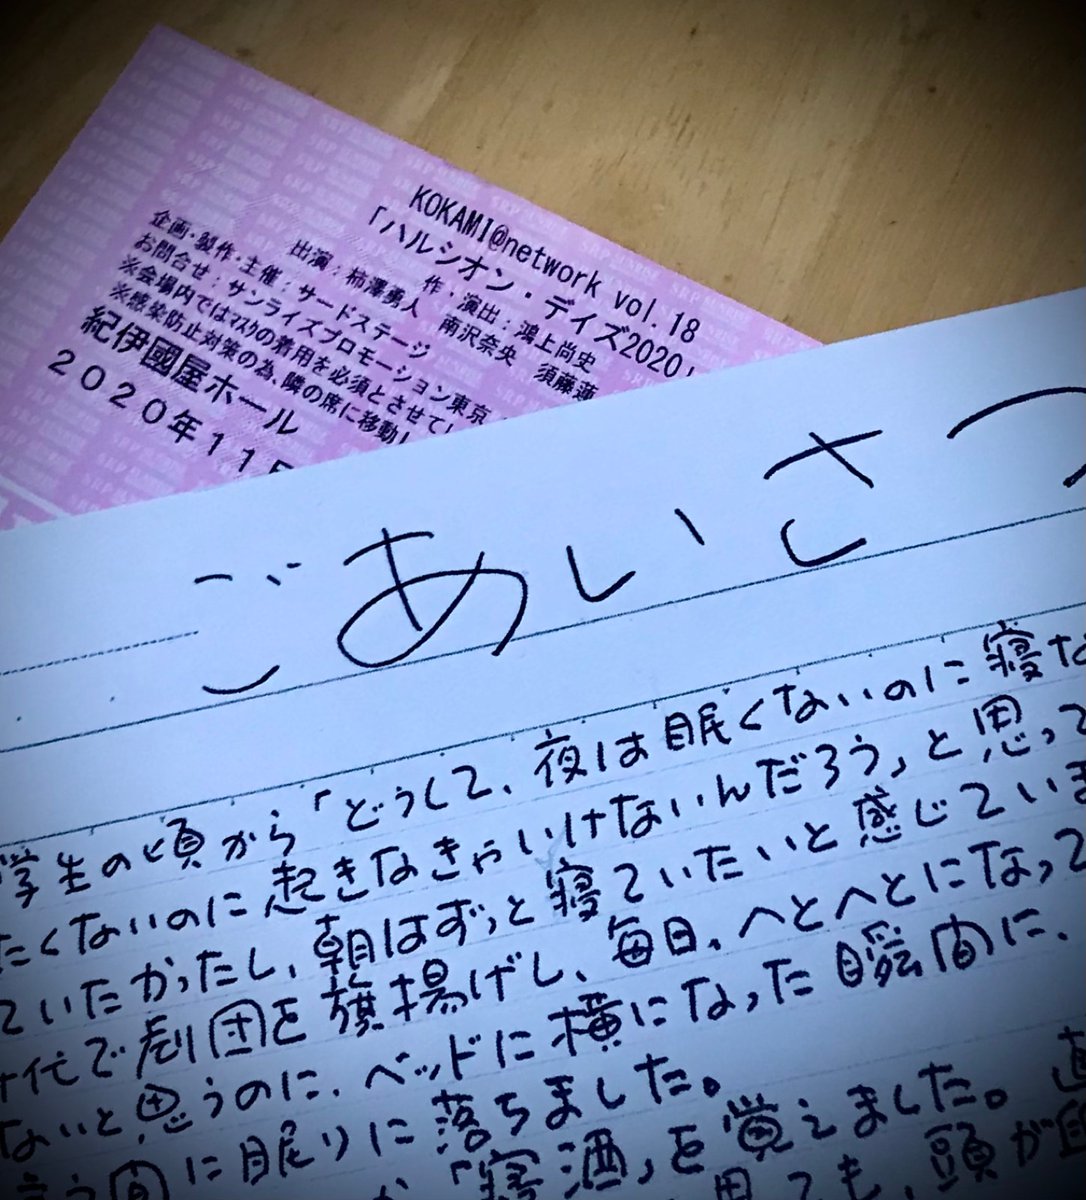 KOKAMI@network vol.18
「ハルシオン・デイズ2020」
作・演出：鴻上尚史
出演：柿澤勇人　南沢奈央　須藤蓮
企画・製作・主催：サードステージ
お問合せ：サンライズプロモーション東京
※会場内ではマスクの着用を必須とさせて
※感染防止対策の為、隣の席に移動
紀伊國屋ホール
2020年11
ごあいさつ
学生の頃から「どうして、夜は眠くないのに寝な
たくないのに起きなきゃいけないんだろう」と思って
ていたかったし、朝はずっと寝ていたいと感じていま
代で劇団を旗揚げし、毎日、へとへとになって
ないと思うのに、ベッドに横になった瞬間に、
言う間に眠りに落ちました。
「寝酒」を覚えました。
思っても、頭が